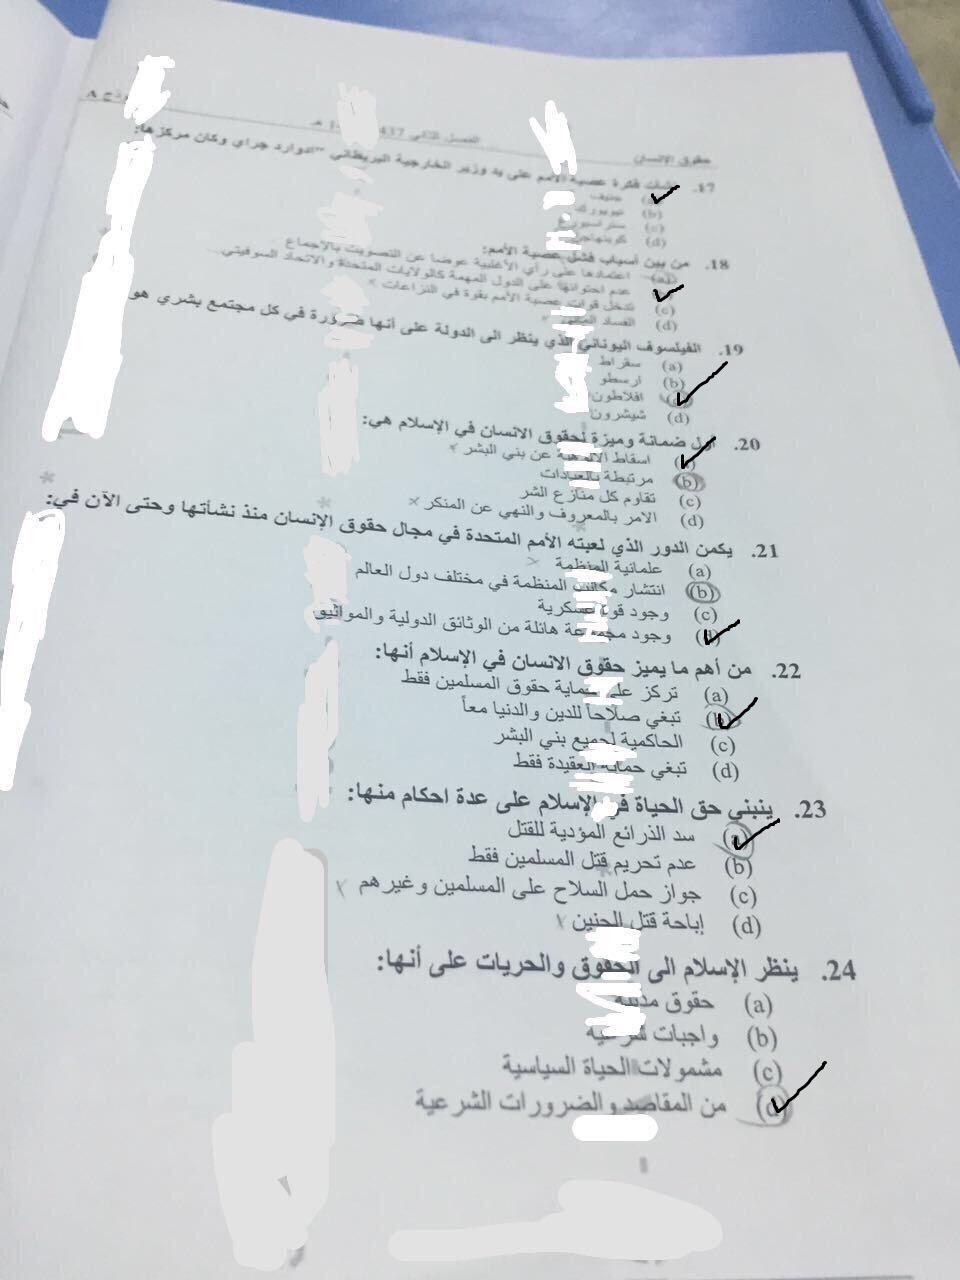 حقوق الإنسان الفصل الثاني 437
17. فكرة عصبة الأمم على يد وزير الخارجية البريطاني "ادوارد جراي وكان مركزها:
(a) جنيف
(b) نيويورك
(c)
(d)
18. من بين أسباب فشل عصبة الأمم:
(a) اعتمادها على رأي الأغلبية عوضا عن التصويت بالإجماع
عدم احتوائها على الدول المهمة كالولايات المتحدة والاتحاد السوفيتي
(c) تدخل قوات عصبة الأمم بقوة في النزاعات
(d) الفساد
19. الفيلسوف اليوناني الذي ينظر الى الدولة على أنها ضرورة في كل مجتمع بشري هو
(a) سقراط
(b) ارسطو
(c) افلاطون
(d) شيشرون
20. اول ضمانة وميزة لحقوق الانسان في الإسلام هي:
(a) اسقاط عن بني البشر
(b) مرتبطة بالعبادات
(c) تقاوم كل منازع الشر
(d) الامر بالمعروف والنهي عن المنكر
21. يكمن الدور الذي لعبته الأمم المتحدة في مجال حقوق الإنسان منذ نشأتها وحتى الآن في:
(a) علمانية المنظمة
(b) انتشار مكاتب المنظمة في مختلف دول العالم
(c) وجود قوة عسكرية
(d) وجود مجموعة هائلة من الوثائق الدولية والمواثيق
22. من أهم ما يميز حقوق الانسان في الإسلام أنها:
(a) تركز على حماية حقوق المسلمين فقط
(b) تبغي صلاحاً للدين والدنيا معاً
(c) الحاكمية لجميع بني البشر
(d) تبغي حماية العقيدة فقط
23. ينبني حق الحياة في الإسلام على عدة احكام منها:
(a) سد الذرائع المؤدية للقتل
(b) عدم تحريم قتل المسلمين فقط
(c) جواز حمل السلاح على المسلمين وغيرهم
(d) إباحة قتل الجنين
24. ينظر الإسلام الى الحقوق والحريات على أنها:
(a) حقوق مدنية
(b) واجبات شرعية
(c) مشمولات الحياة السياسية
(d) من المقاصد والضرورات الشرعية